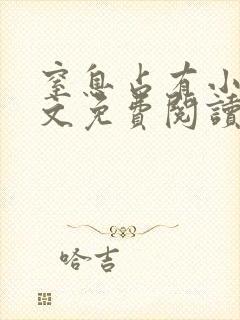 窒息占有小
文免費閱讀
哈吉